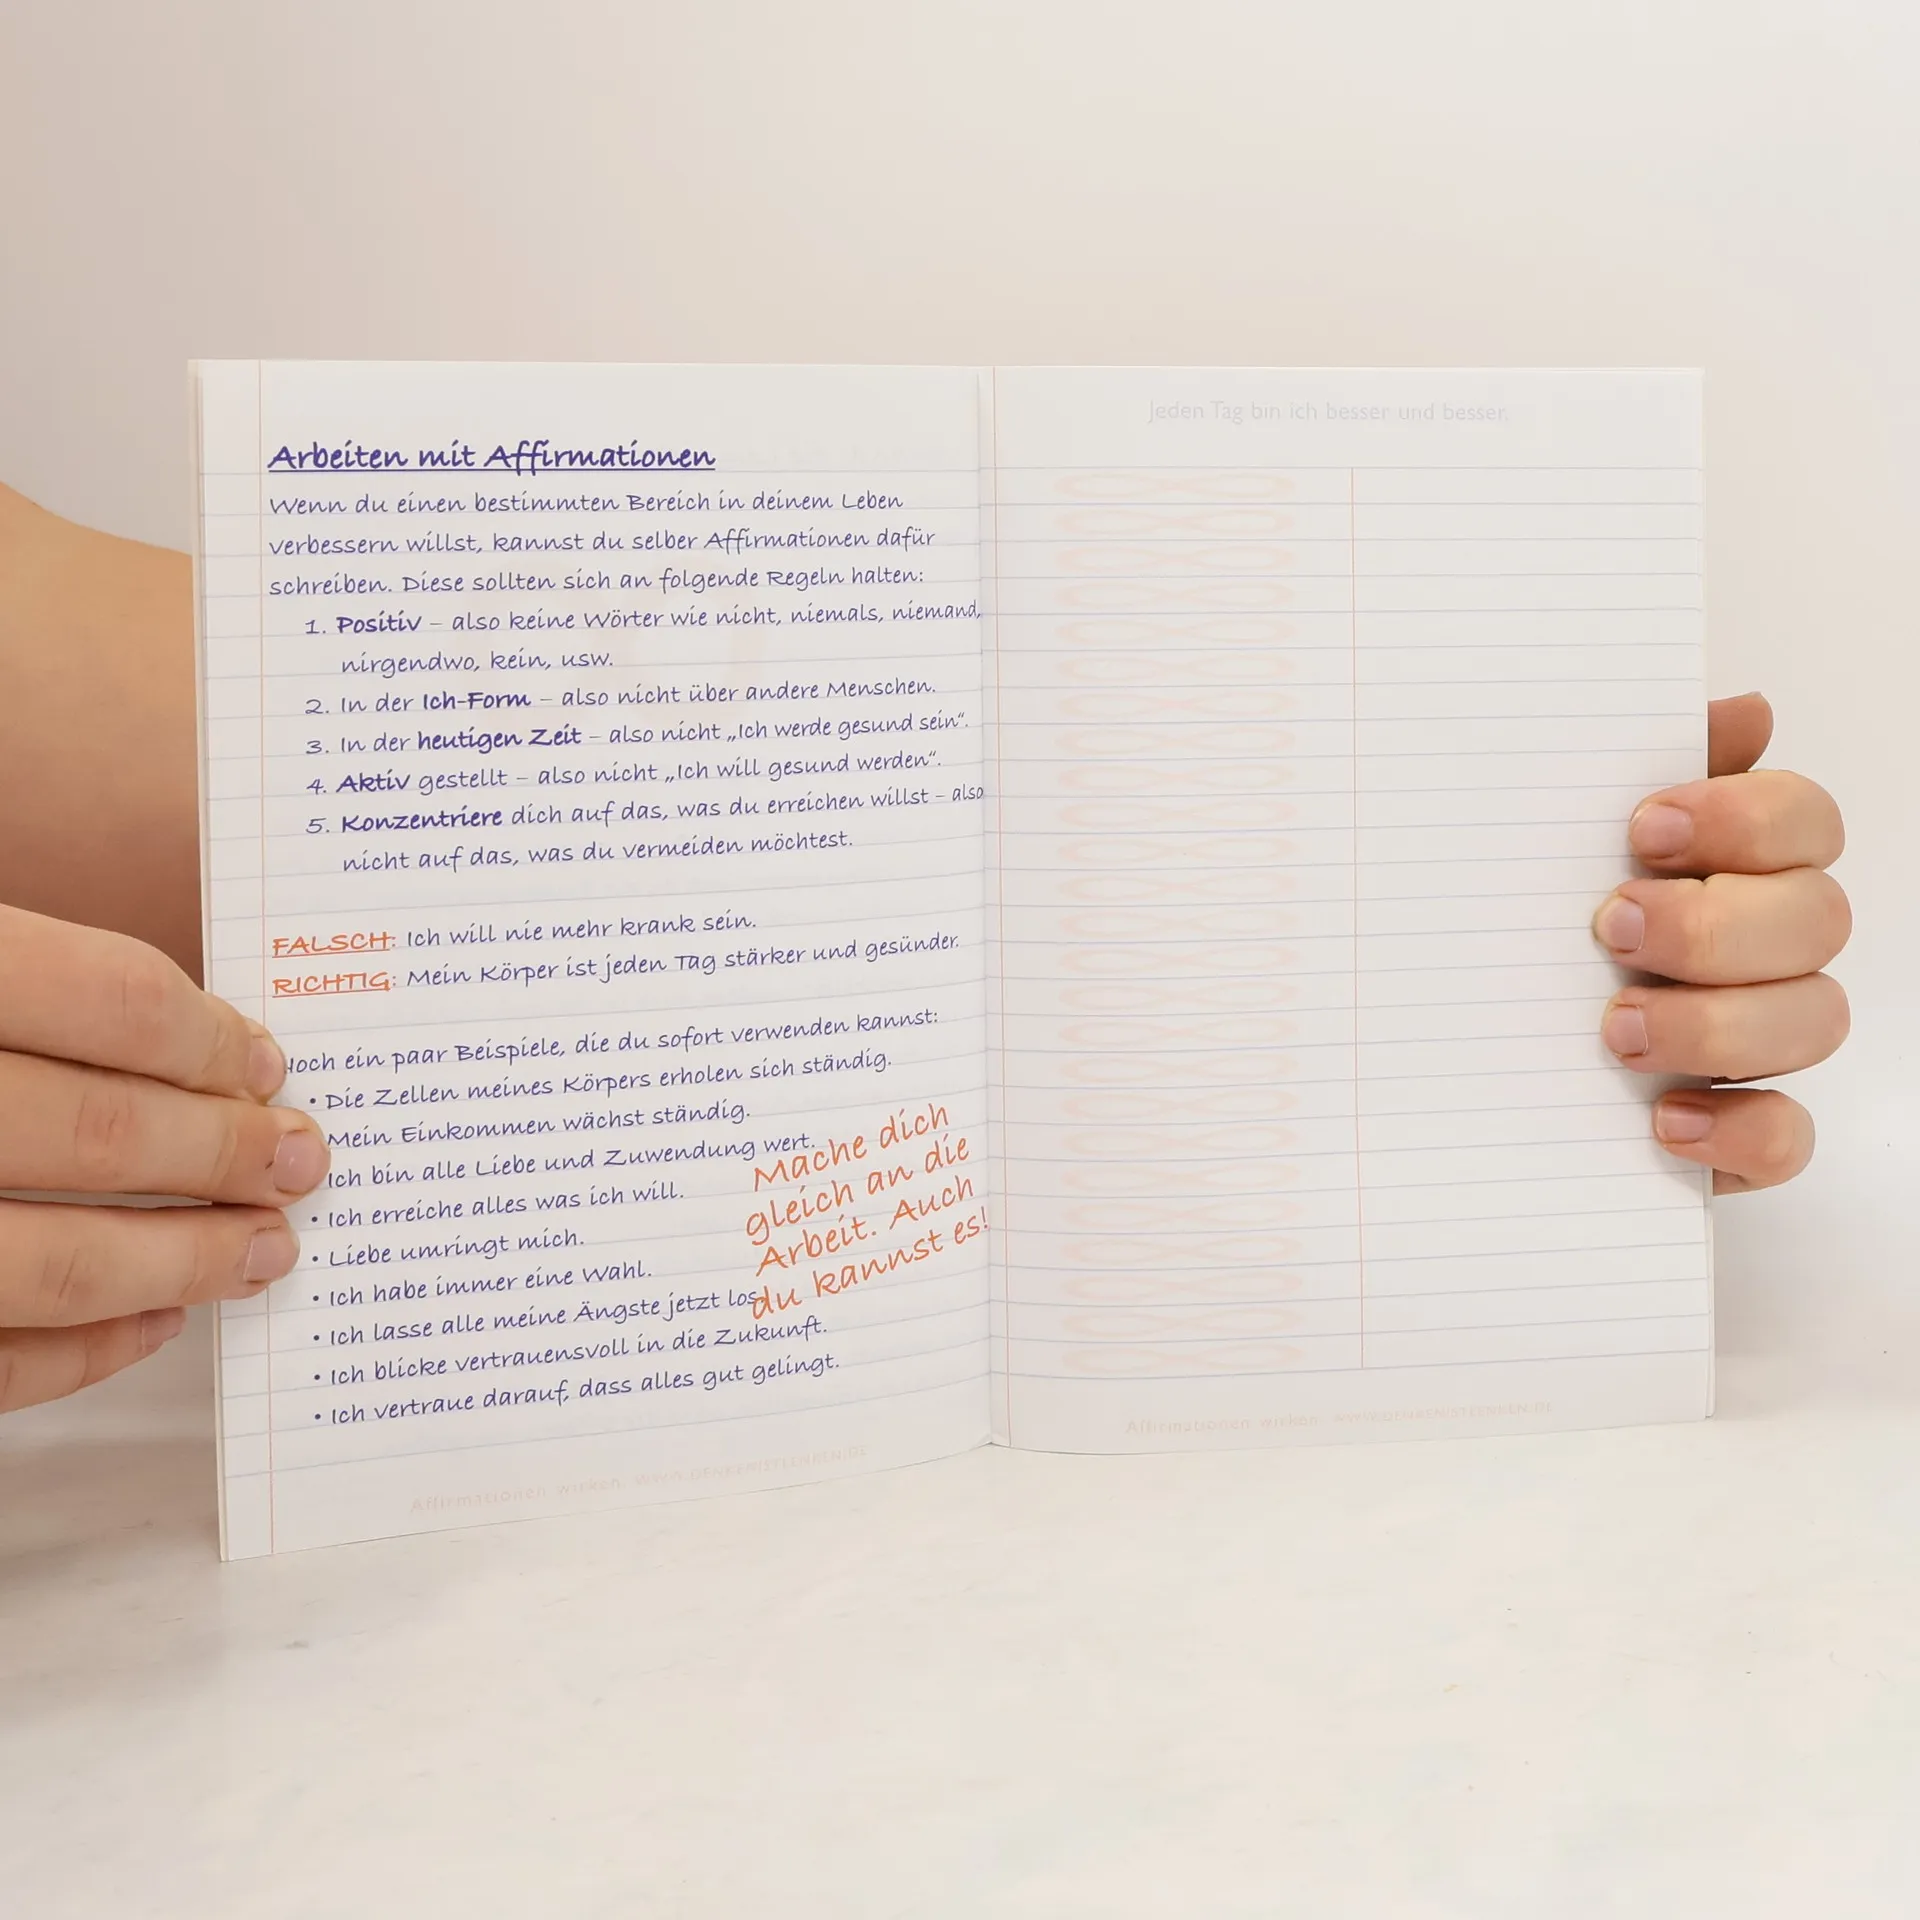 Arbeiten mit Affirmationen
Wenn du einen bestimmten Bereich in deinem Leben
verbessern willst, kannst du selber Affirmationen dafür
schreiben. Diese sollten sich an folgende Regeln halten:
1. Positiv – also keine Wörter wie nicht, niemals, niemand,
nirgendwo, kein, usw.
2. In der Ich-Form – also nicht über andere Menschen.
3. In der heutigen Zeit – also nicht „Ich werde gesund sein“.
4. Aktiv gestellt – also nicht „Ich will gesund werden“.
5. Konzentriere dich auf das, was du erreichen willst – also
nicht auf das, was du vermeiden möchtest.
FALSCH: Ich will nie mehr krank sein.
RICHTIG: Mein Körper ist jeden Tag stärker und gesünder.
Noch ein paar Beispiele, die du sofort verwenden kannst:
• Die Zellen meines Körpers erholen sich ständig.
Mein Einkommen wächst ständig.
Ich bin alle Liebe und Zuwendung wert.
• Ich erreiche alles was ich will.
• Liebe umringt mich.
• Ich habe immer eine Wahl.
• Ich lasse alle meine Ängste jetzt los.
• Ich blicke vertrauensvoll in die Zukunft.
• Ich vertraue darauf, dass alles gut gelingt.
Mache dich
gleich an die
Arbeit. Auch
du kannst es!
Affirmationen wirken.
Jeden Tag bin ich besser und besser.
Affirmationen wirken.